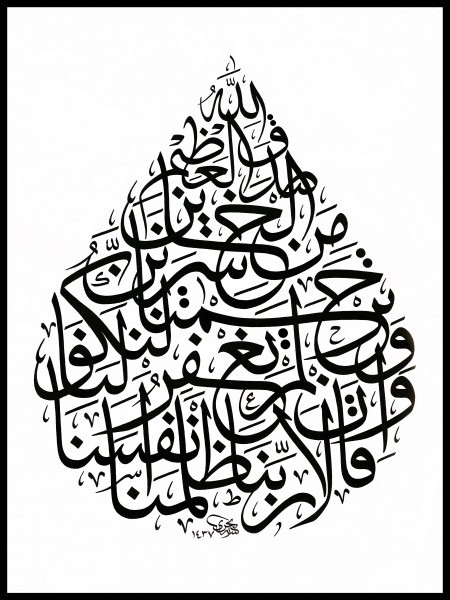 قالا ربنا ظلمنا أنفسنا
وإن لم تغفر لنا
وترحمنا لنكونن
من الخسرين
صدق الله العظيم
١٤٣٧